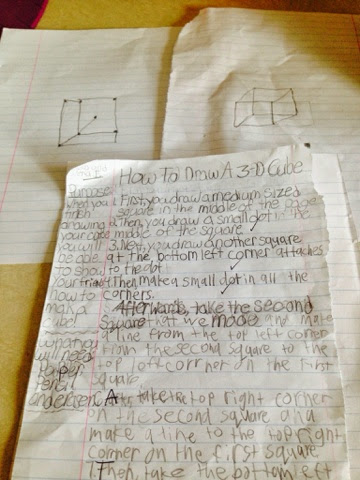 How To Draw A 3-D Cube
Purpose:
when you
finish
drawing
your cube
you will
be able
to show
your friends
how to
make a
cube!
what you
will need
Paper
Pencil
and eraser
1. First, you draw a medium sized
square in the middle of the page
2. Then, you draw a small dot in the
middle of the square
3. Next, you draw another square
at the bottom left corner attaches
to the dot.
Then make a small dot in all the
corners.
Afterwards, take the second
square that we made and make
a line from the top left corner
from the second square to the
top left corrner on the first
square
take the top right corner
on the second square and
make a line to the top right
corner on the first square
Then, take the bottom left